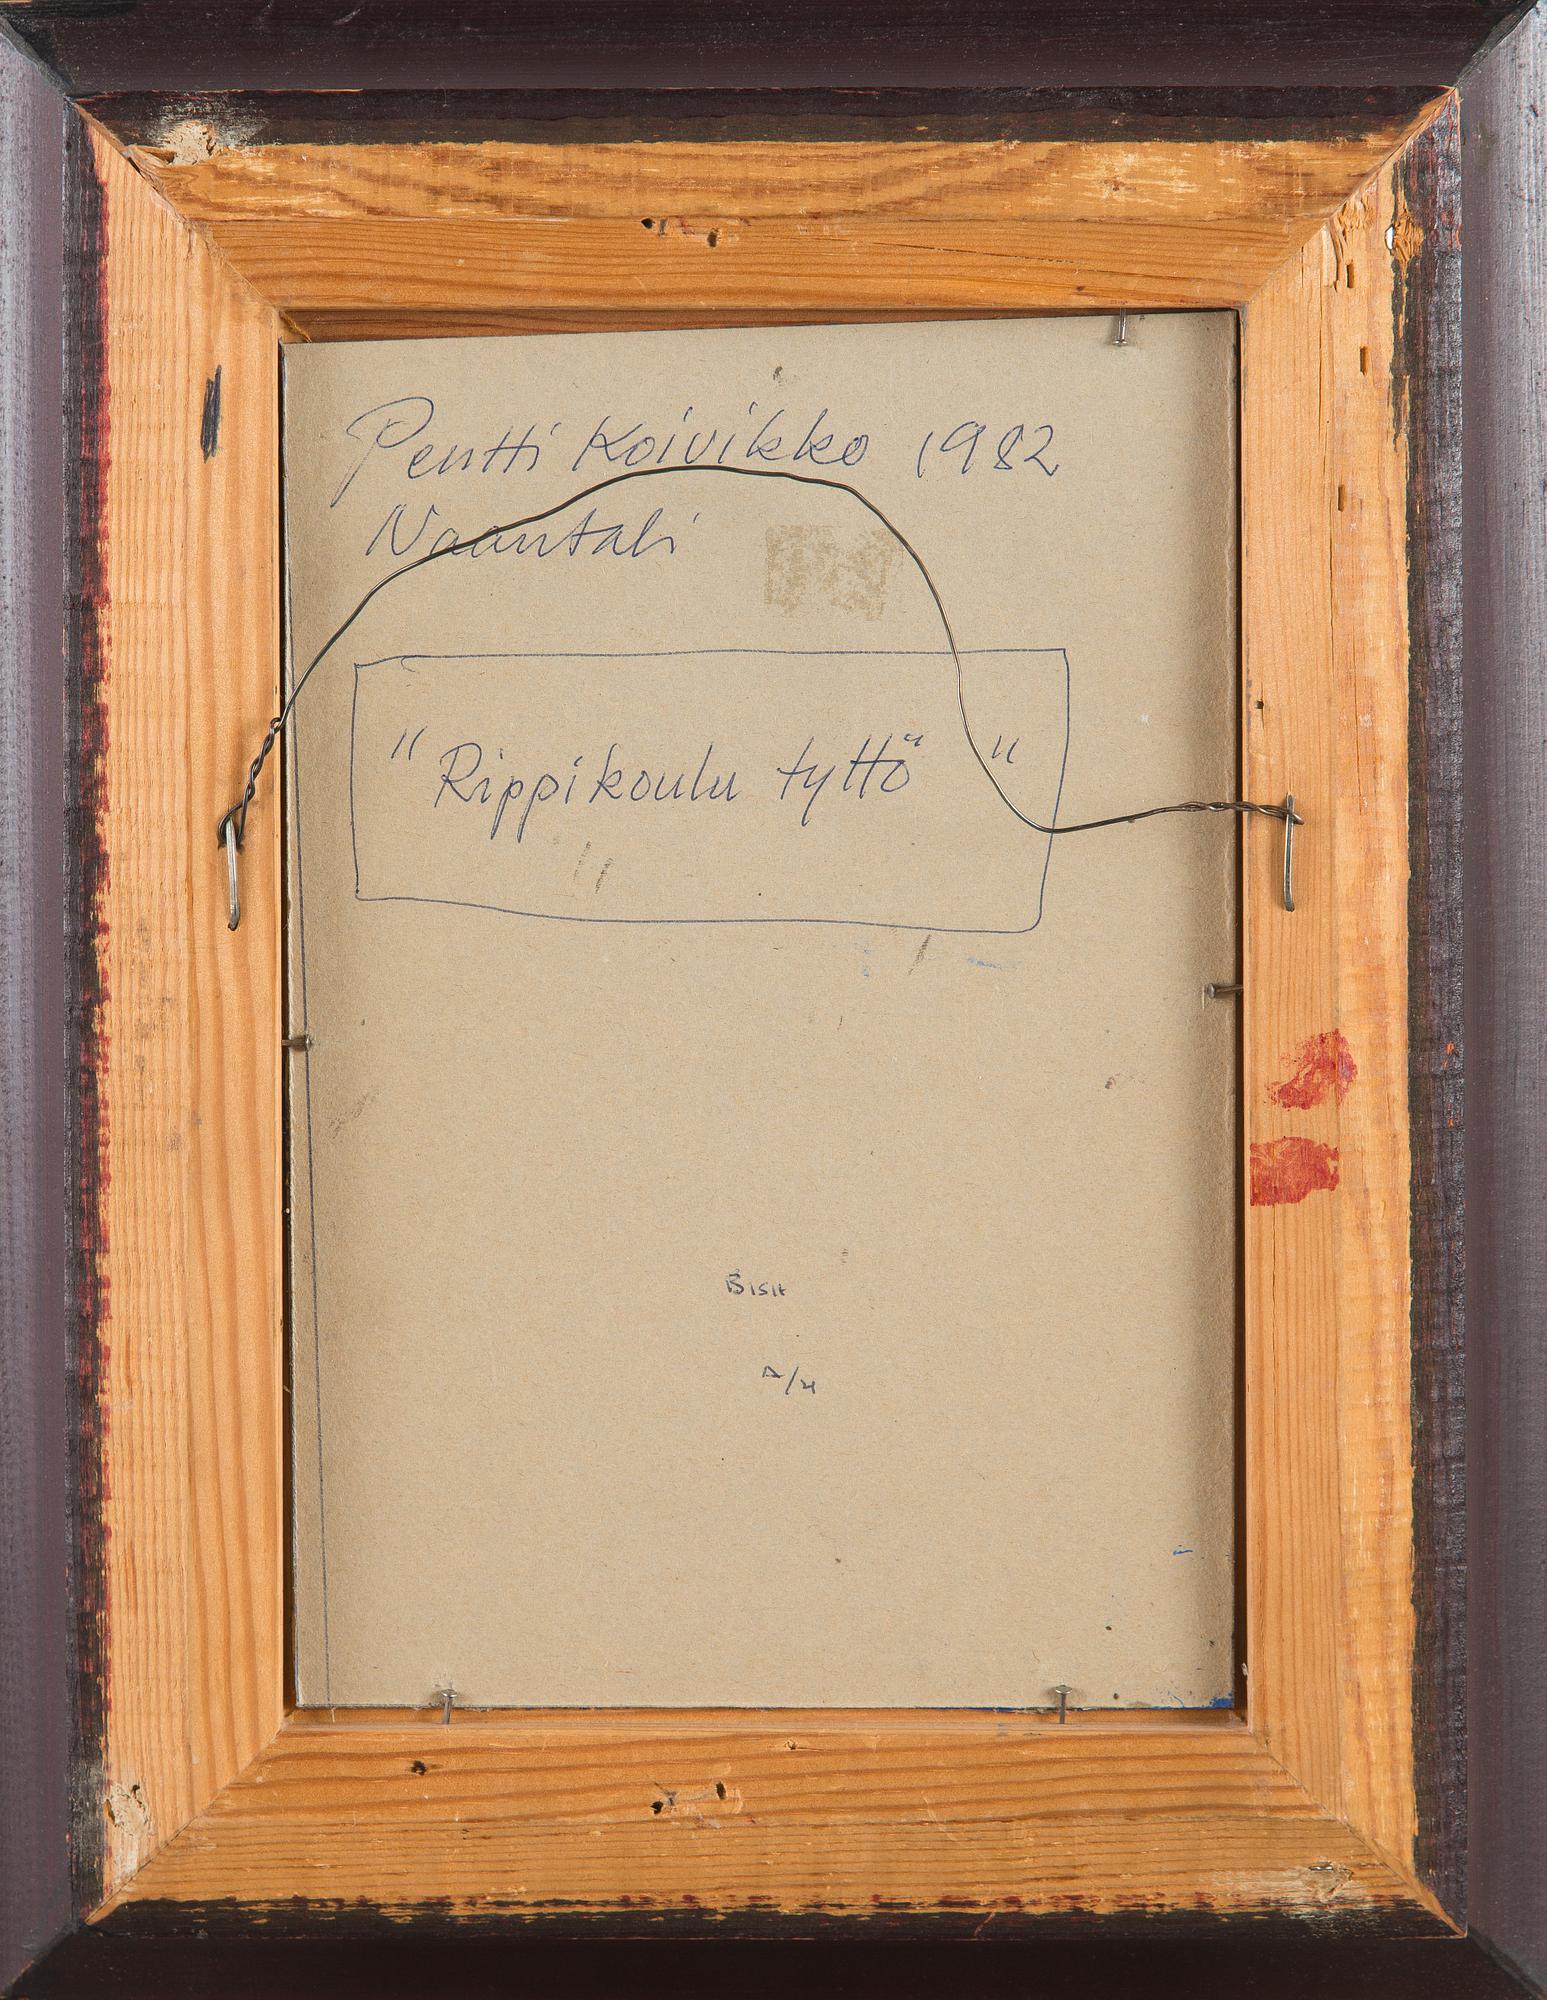 Pentti Koivikko 1982
Naantali
"Rippikoulu tyttö"